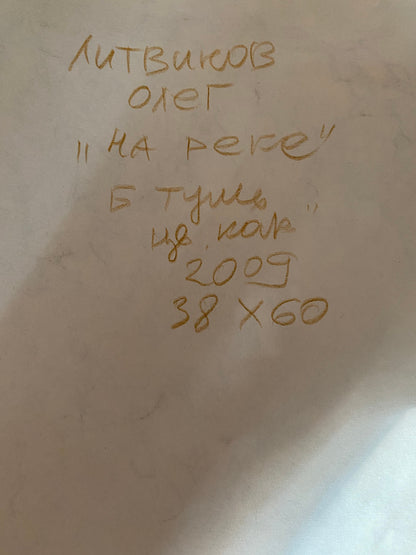 Литвиков
Олег
"На реке"
Б тушь
цв. кар"
2009
38 X 60